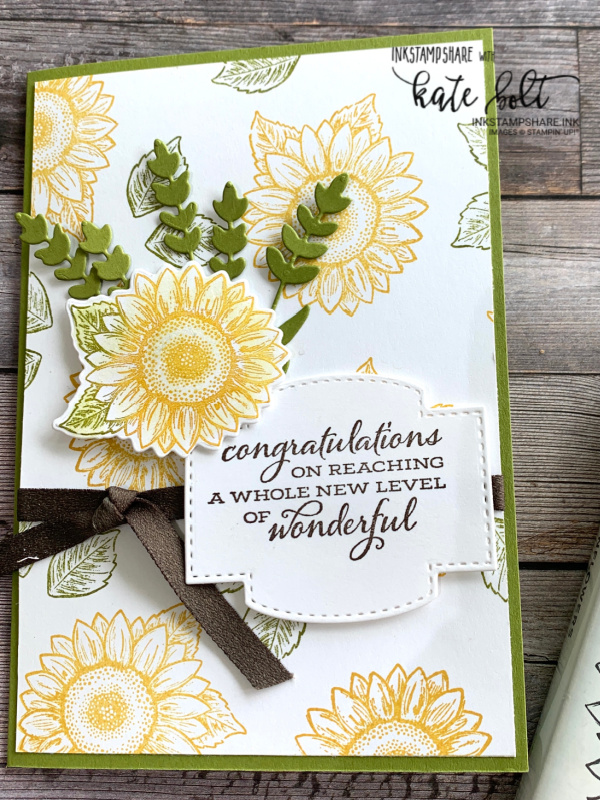 INKSTAMPSHARE with
kate bolt
INKSTAMPSHARE.INK
IMAGES © STAMPIN' UP!®
congratulations
ON REACHING
A WHOLE NEW LEVEL
OF wonderful